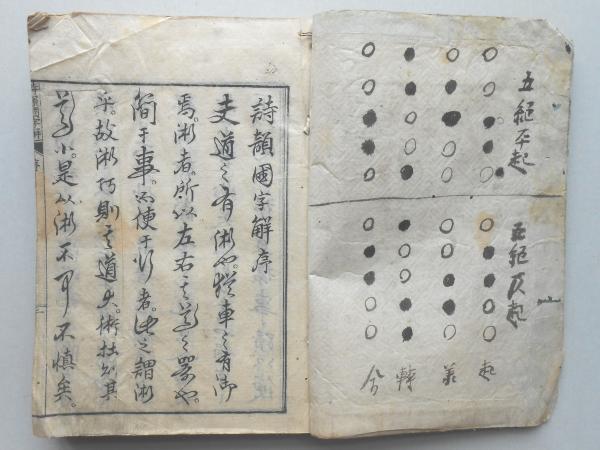 五絕平起
五絕仄起
起
承
轉
合
詩韻國字解序
夫道之有術也。猶車之有御
焉。術者。所以左右其道之器也。
簡于事。而便于行者。此之謂術
乎。故術巧則其道大。術拙則其
道小。是以術不可不慎矣。